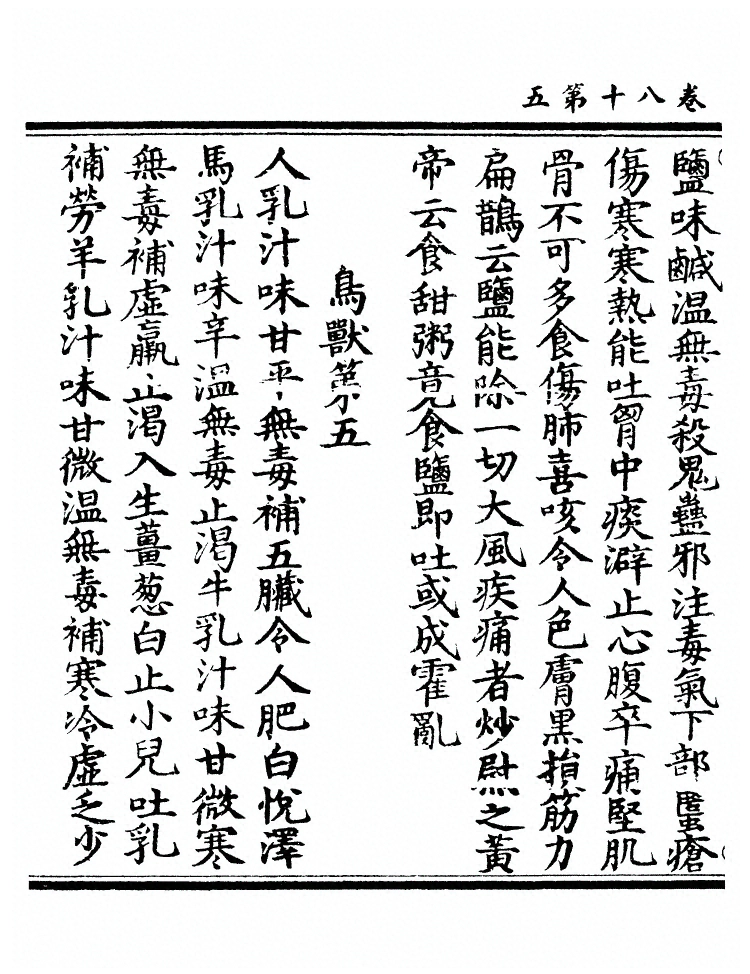 卷八十第五
鹽味鹹溫無毒殺鬼蠱邪注毒氣下部䘌瘡
傷寒寒熱能吐胷中痰澼止心腹卒痛堅肌
骨不可多食傷肺喜咳令人色膚黑損筋力
扁鵲云鹽能除一切大風疾痛者炒熨之黃
帝云食甜粥竟食鹽即吐或成霍亂
鳥獸第五
人乳汁味甘平無毒補五臟令人肥白悅澤
馬乳汁味辛溫無毒止渴牛乳汁味甘微寒
無毒補虛羸止渴入生薑葱白止小兒吐乳
補勞羊乳汁味甘微溫無毒補寒冷虛乏少